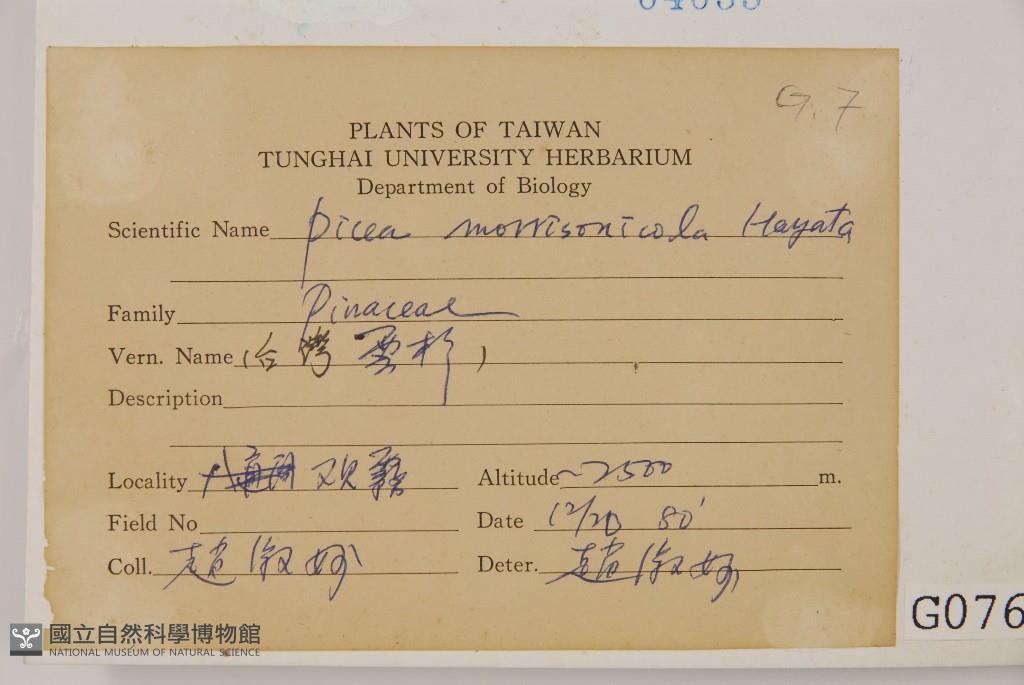 04035
G. 7
PLANTS OF TAIWAN
TUNGHAI UNIVERSITY HERBARIUM
Department of Biology
Scientific Name Picea morrisonicola Hayata
Family Pinaceae
Vern. Name (台灣雲杉)
Description
Locality 观霧
Altitude ~2500 m.
Field No
Date 12/20 80'
Coll. 趙淑妙
Deter. 趙淑妙
G076
國立自然科學博物館
NATIONAL MUSEUM OF NATURAL SCIENCE